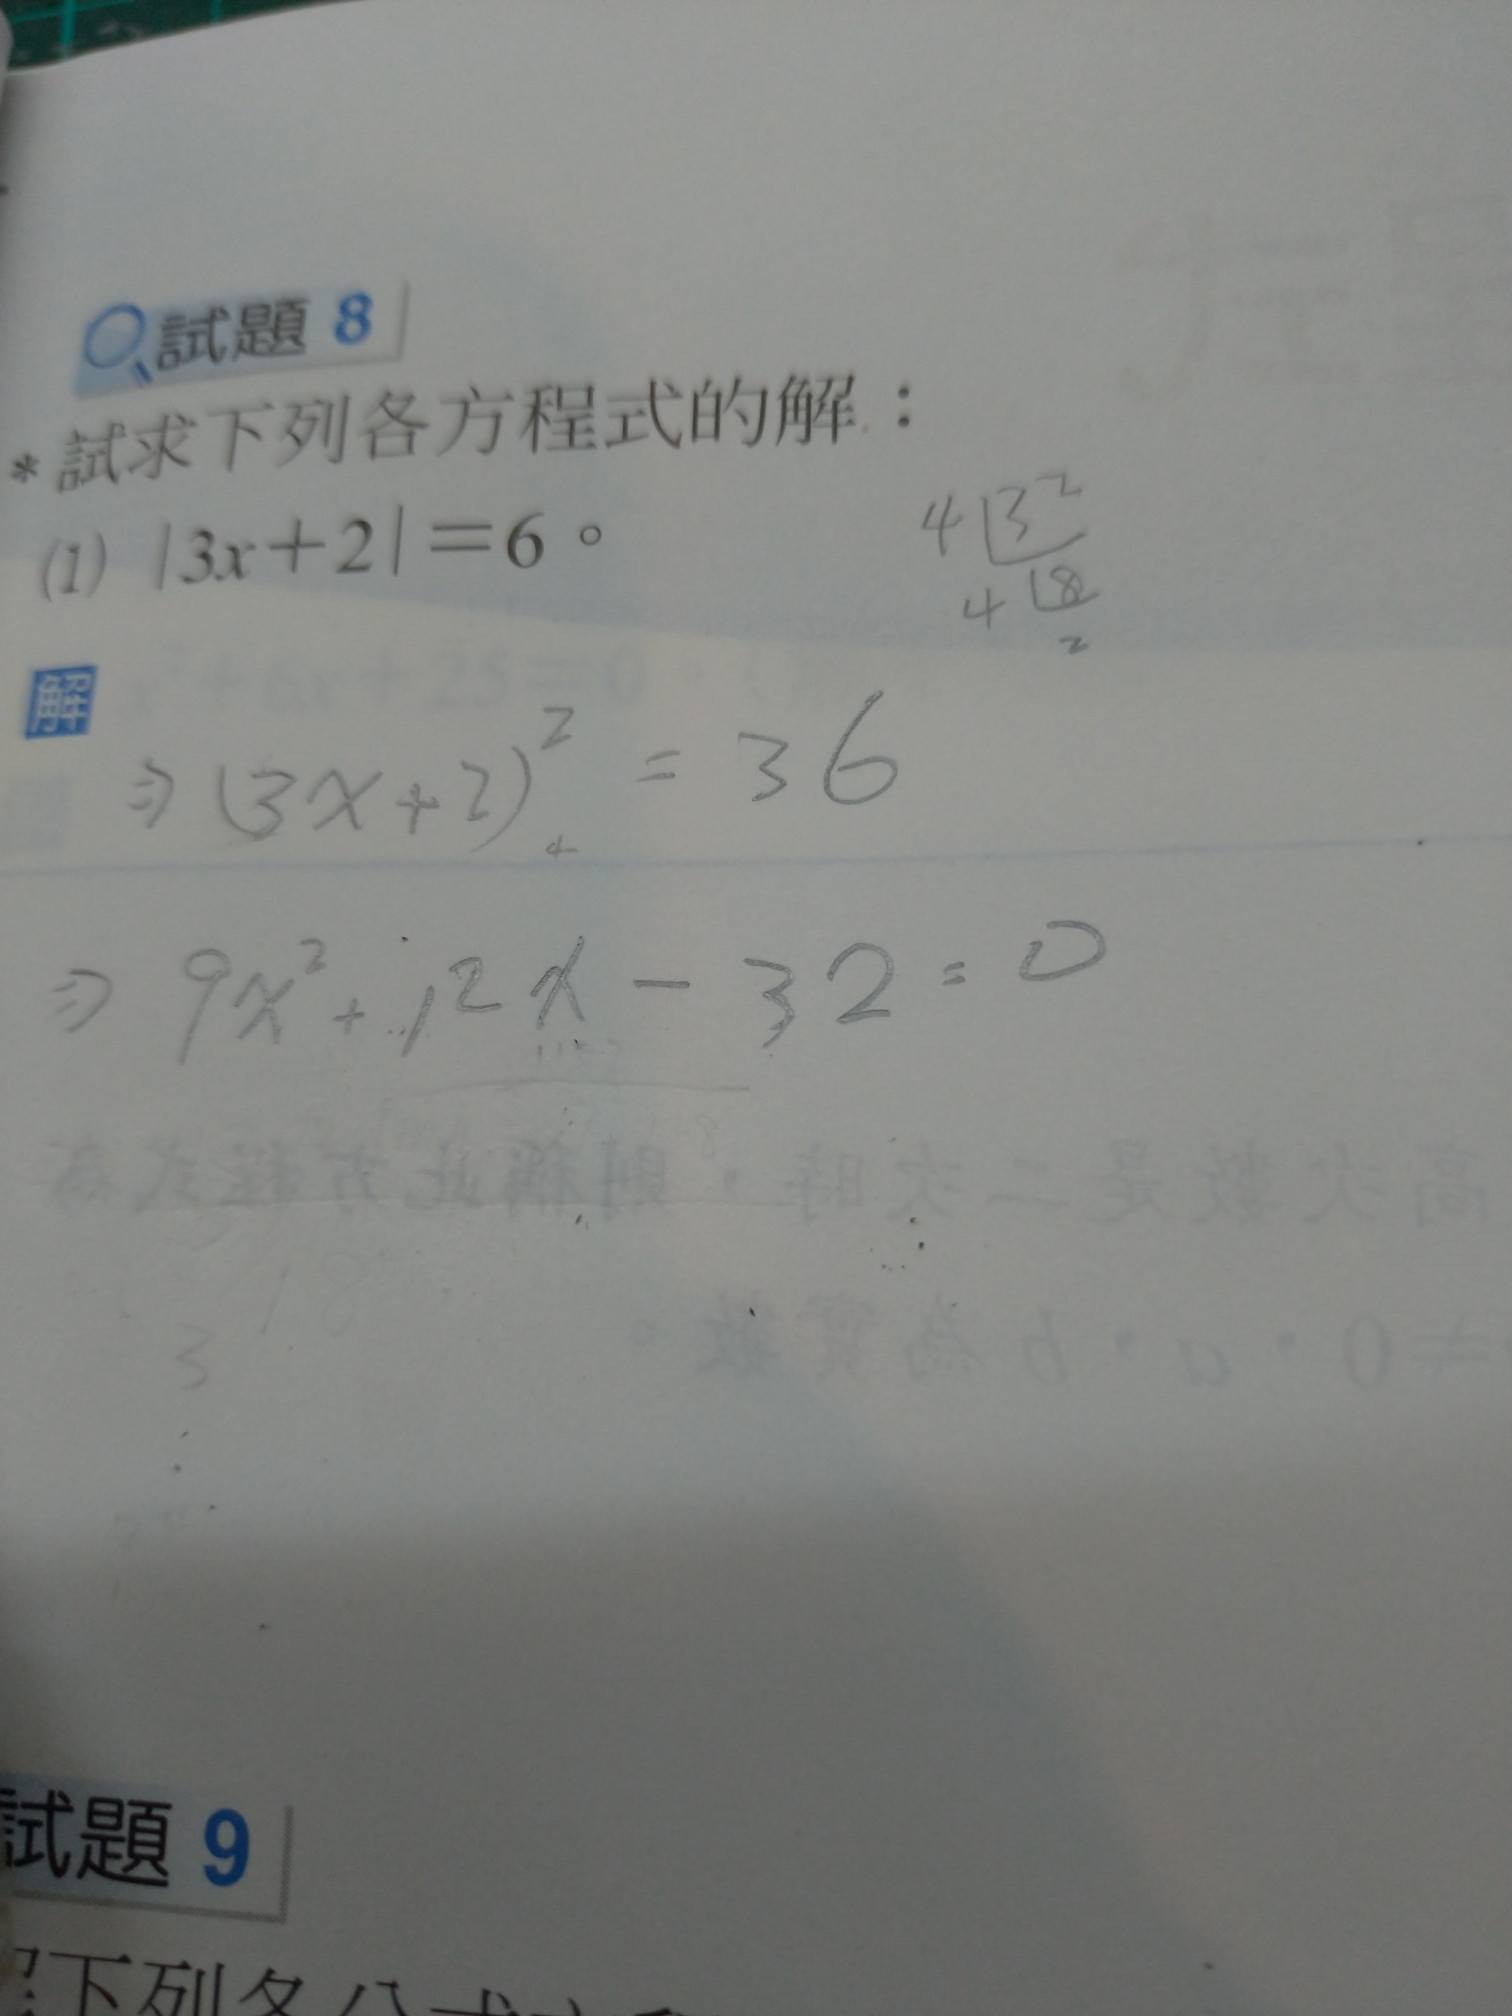 試題 8
*試求下列各方程式的解：
(1) |3x+2|=6。
4 32
4 8
2
解
⇒ (3x+2)² = 36
4
⇒ 9x²+12x-32=0
18
3
試題 9
下列各